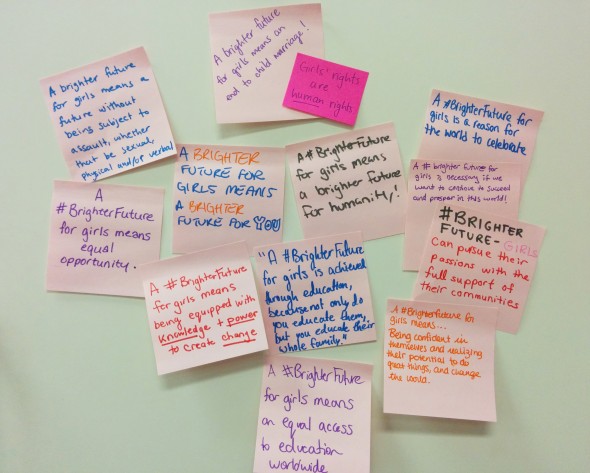 A brighter future
for girls means an
end to child marriage!
Girls' rights
are
human rights
A brighter future
for girls means a
future without
being subject to
assault, whether
that be sexual,
physical and/or verbal
A BRIGHTER
FUTURE FOR
GIRLS MEANS
A BRIGHTER
FUTURE FOR YOU
A #BrighterFuture
for girls means
a brighter future
for humanity!
A #BrighterFuture for
girls is a reason for
the world to celebrate
A # brighter future for
girls is necessary if we
want to continue to succeed
and prosper in this world!
A
#BrighterFuture
for girls means
equal
opportunity.
#BRIGHTER
FUTURE - GIRLS
Can pursue their
passions with the
full support of
their communities
A #BrighterFuture
for girls means
being equipped with
knowledge + power
to create change
"A #BrighterFuture
for girls is achieved
through education,
because not only do
you educate them,
but you educate their
whole family."
A #BrighterFuture for
girls means...
Being confident in
themselves and realizing
their potential to do
great things, and change
the world.
A #BrighterFuture
for girls means
an equal access
to education
worldwide